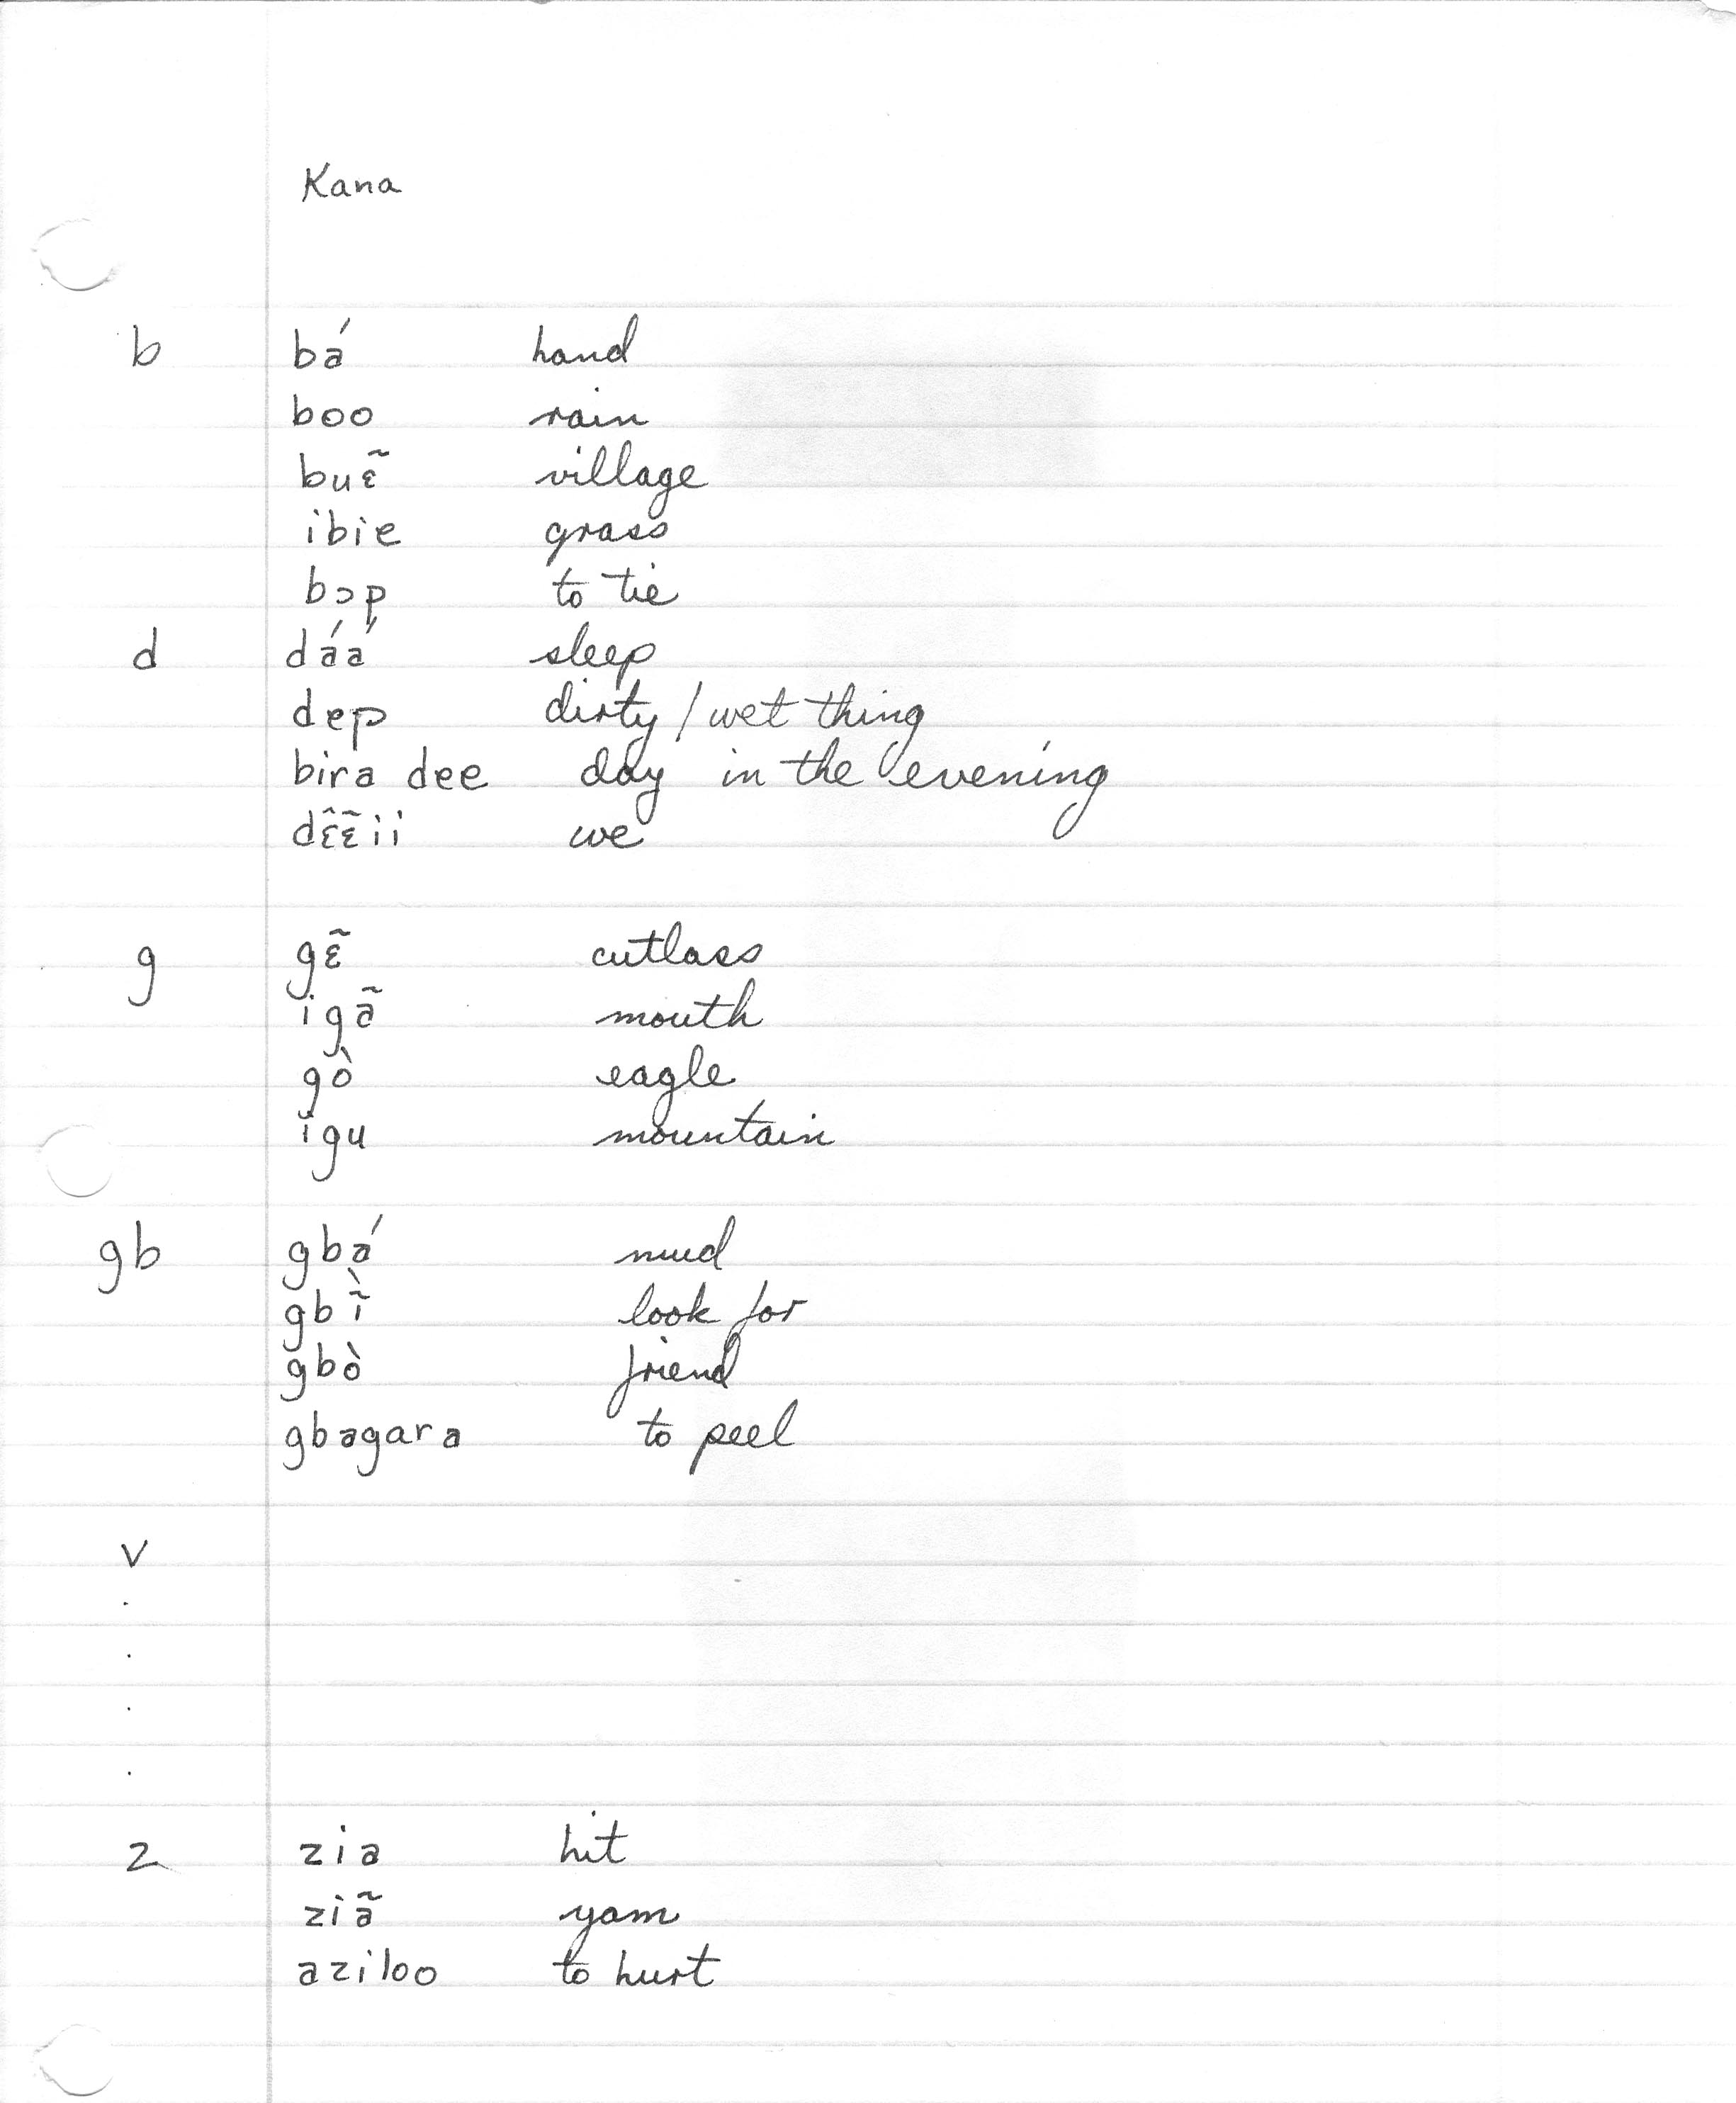 Kana
b bá hand
boo rain
buɛ̃ village
ibie grass
bɔp to tie
d dáá sleep
dep dirty / wet thing
bira dee day in the evening
dɛ̃ɛ̃ii we
g gɛ̃ cutlass
igã mouth
gò eagle
igu mountain
gb gbá mud
gbĩ̀ look for
gbò friend
gbagara to peel
v
.
.
.
.
z zia hit
ziã yam
aziloo to hurt